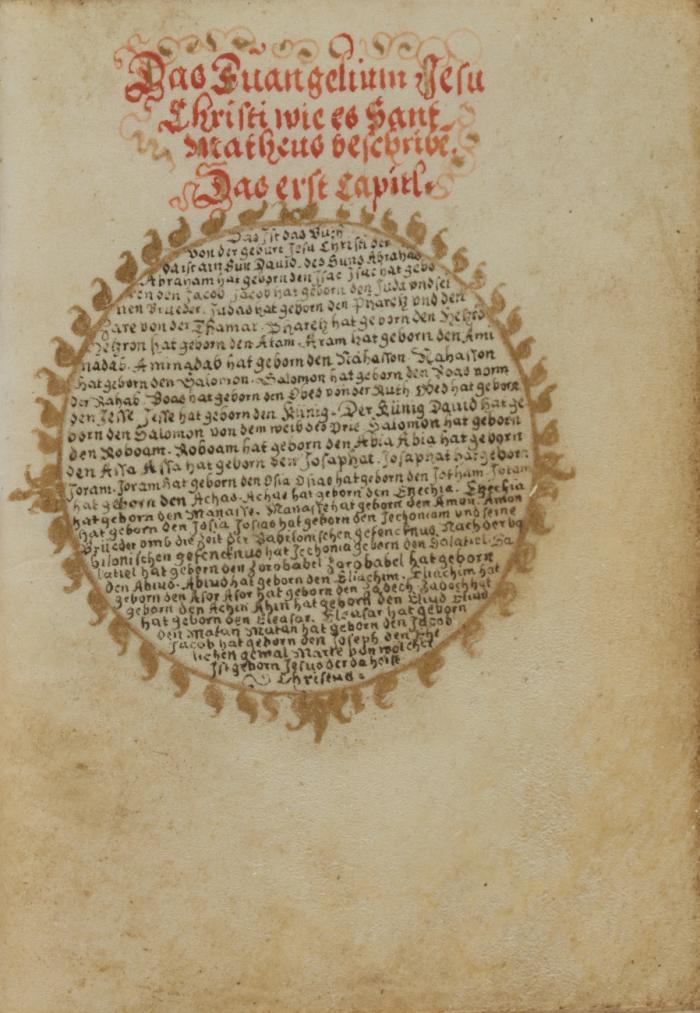 Das Euangelium Jesu
Christi wie es Sant
Matheus beschribt.
Das erst Capitl.
Das Ist das Buch
von der geburt Jesu Christi der
da ist ain Sun David. des Suns Abrahas
Abraham hat geborn den Isac Isac hat gebo
ren den Jacob Jacob hat geborn den Juda vnd sei
nen Brueder. Judas hat geborn den Pharetz vnd den
Zare von der Thamar. Pharetz hat geborn den Hetzro
Hetzron hat geborn den Aram. Aram hat geborn den Ami
nadab. Aminadab hat geborn den Nahasson. Nahasson
hat geborn den Salomon. Salomon hat geborn den Boas vonn
der Rahab. Boas hat geborn den Obed von der Ruth. Obed hat geborn
den Jesse. Jesse hat geborn den Künig. Der Künig Dauid hat ge
born den Salomon von dem weib des Vrie Salomon hat geborn
den Roboam. Roboam hat geborn den Abia Abia hat geborn
den Assa Assa hat geborn den Josaphat. Josaphat hat geborn
Joram. Joram hat geborn den Osia Osias hat geborn den Jotham. Jotam
hat geborn den Achas. Achas hat geborn den Ezechia. Ezechia
hat geborn den Manasse. Manasse hat geborn den Amon. Amon
hat geborn den Josia Josias hat geborn den Jechoniam vnd seine
Brüeder vmb die zeit der Babilonischen gefencknus Nach der ba
bilonischen gefencknus hat Jechonia geborn den Salatiel. Sa
latiel hat geborn den Zorobabel Zorobabel hat geborn
den Abiud. Abiud hat geborn den Eliachim. Eliachim hat
geborn den Asor Asor hat geborn den Zadoch Zadoch hat
geborn den Achin Ahin hat geborn den Eliud Eliud
hat geborn den Eleasar. Eleasar hat geborn
den Matan Matan hat geborn den Jacob
Jacob hat geborn den Joseph den Ehe
lichen gemal Marie von welcher
Ist geborn Jesus der da heist
Christus.